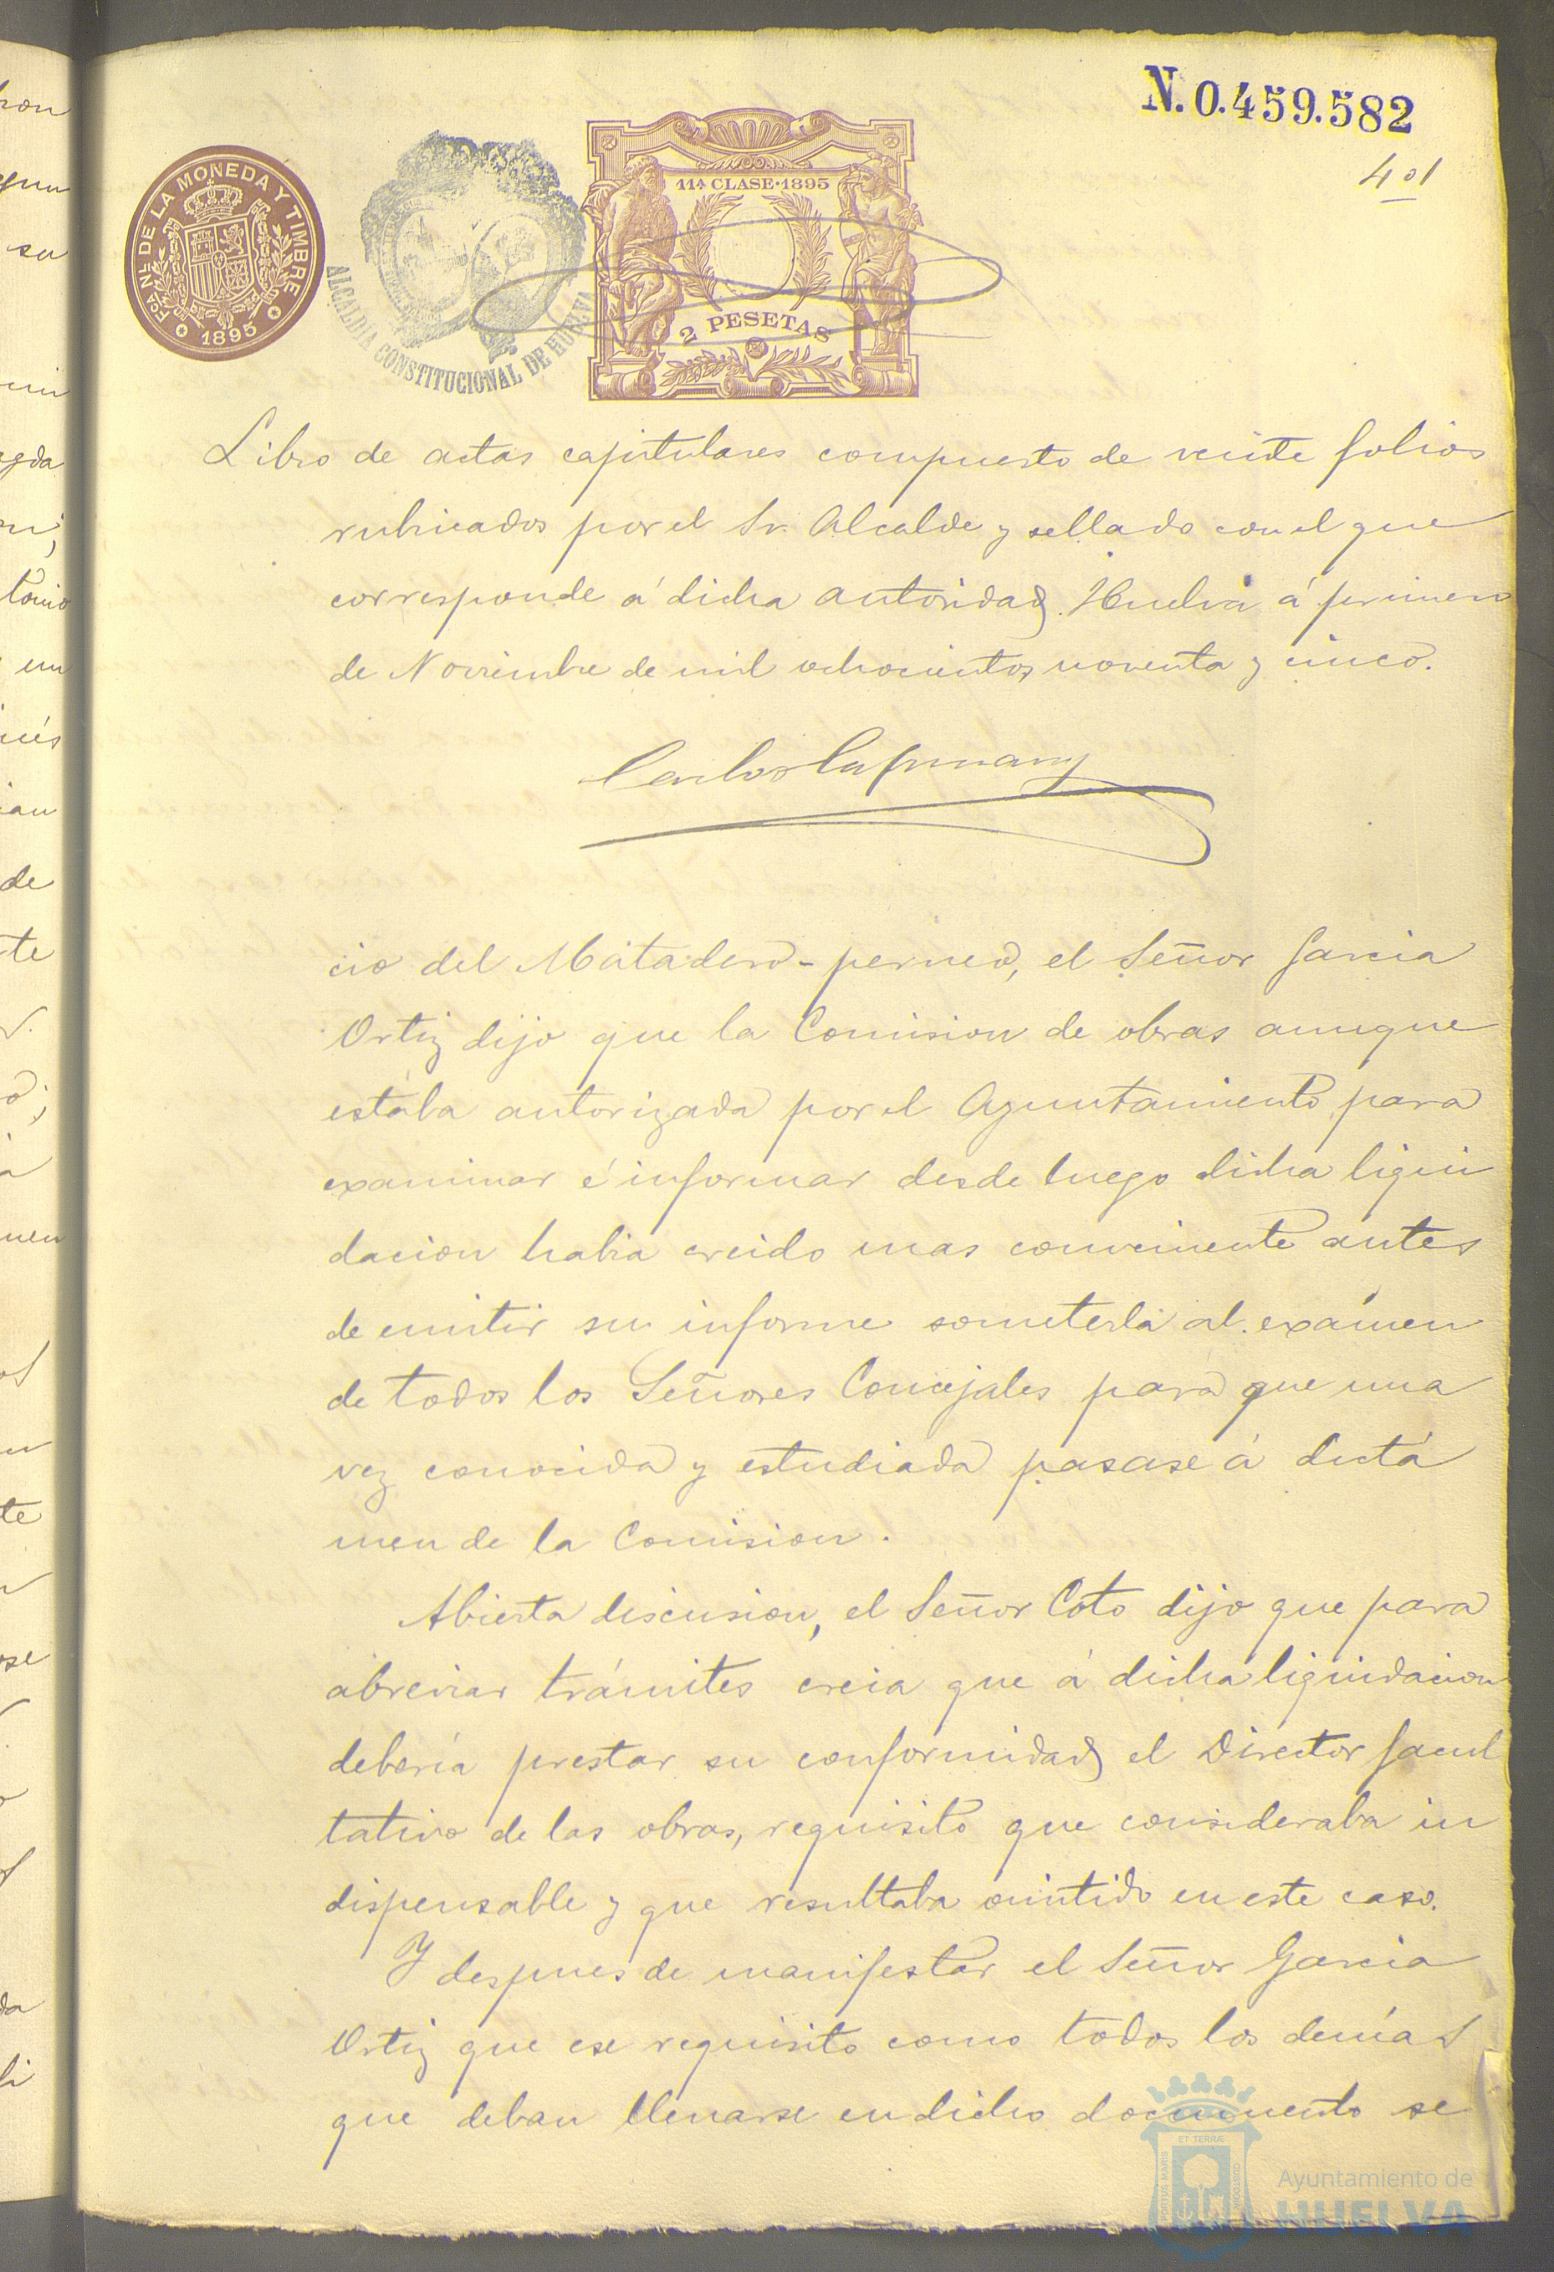 N. 0.459.582
401
FCA NL DE LA MONEDA Y TIMBRE
1895
ALCALDIA CONSTITUCIONAL DE HUELVA
11ª CLASE·1895
2 PESETAS
Libro de actas capitulares compuesto de veinte folios
rubricados por el Sr. Alcalde y sellado con el que
corresponde á dicha autoridad. Huelva á primero
de Noviembre de mil ochocientos noventa y cinco.
Carlos
cio del Matadero-perneo, el Señor Garcia
Ortiz dijo que la Comision de obras aunque
estaba autorizada por el Ayuntamiento para
examinar é informar desde luego dicha liqui
dacion habia creido mas conveniente antes
de emitir su informe someterla al exámen
de todos los Señores Concejales para que una
vez conocida y estudiada pasase á dictá
men de la Comision.
Abierta discusion, el Señor Coto dijo que para
abreviar trámites creia que á dicha liquidacion
debería prestar su conformidad el Director facul
tativo de las obras, requisito que consideraba in
dispensable y que resultaba omitido en este caso.
Y despues de manifestar el Señor Garcia
Ortiz que ese requisito como todos los demás
que deban llenarse en dicho documento se
PORTUS MARIS ET TERRÆ CUSTODIA
Ayuntamiento de
HUELVA